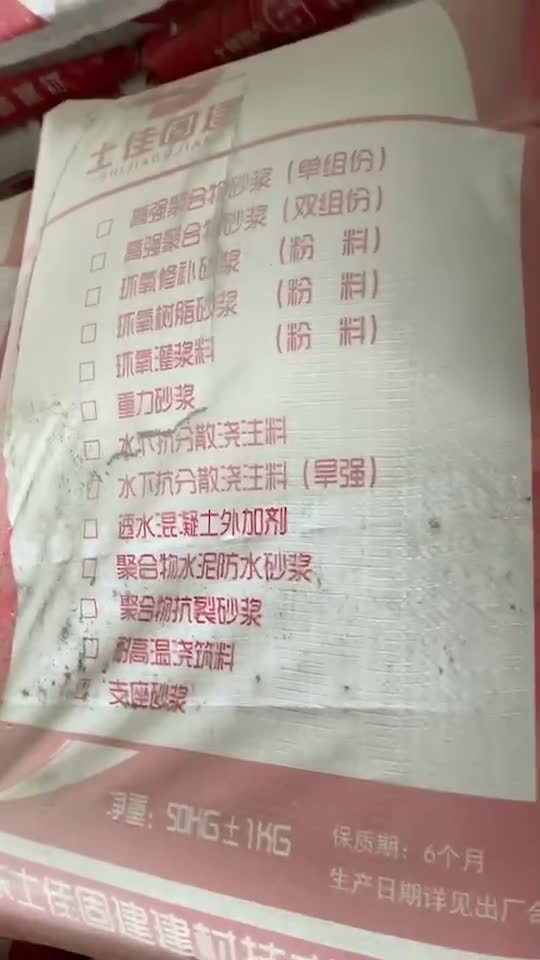 士佳固建
SHIJIAGUJIAN
高强聚合物砂浆（单组份）
高强聚合物砂浆（双组份）
环氧修补砂浆（粉 料）
环氧树脂砂浆（粉 料）
环氧灌浆料（粉 料）
重力砂浆
水下抗分散浇注料
水下抗分散浇注料（早强）
透水混凝土外加剂
聚合物水泥防水砂浆
聚合物抗裂砂浆
耐高温浇筑料
支座砂浆
净重：50KG±1KG
保质期：6个月
生产日期详见出厂合
士佳固建建材技